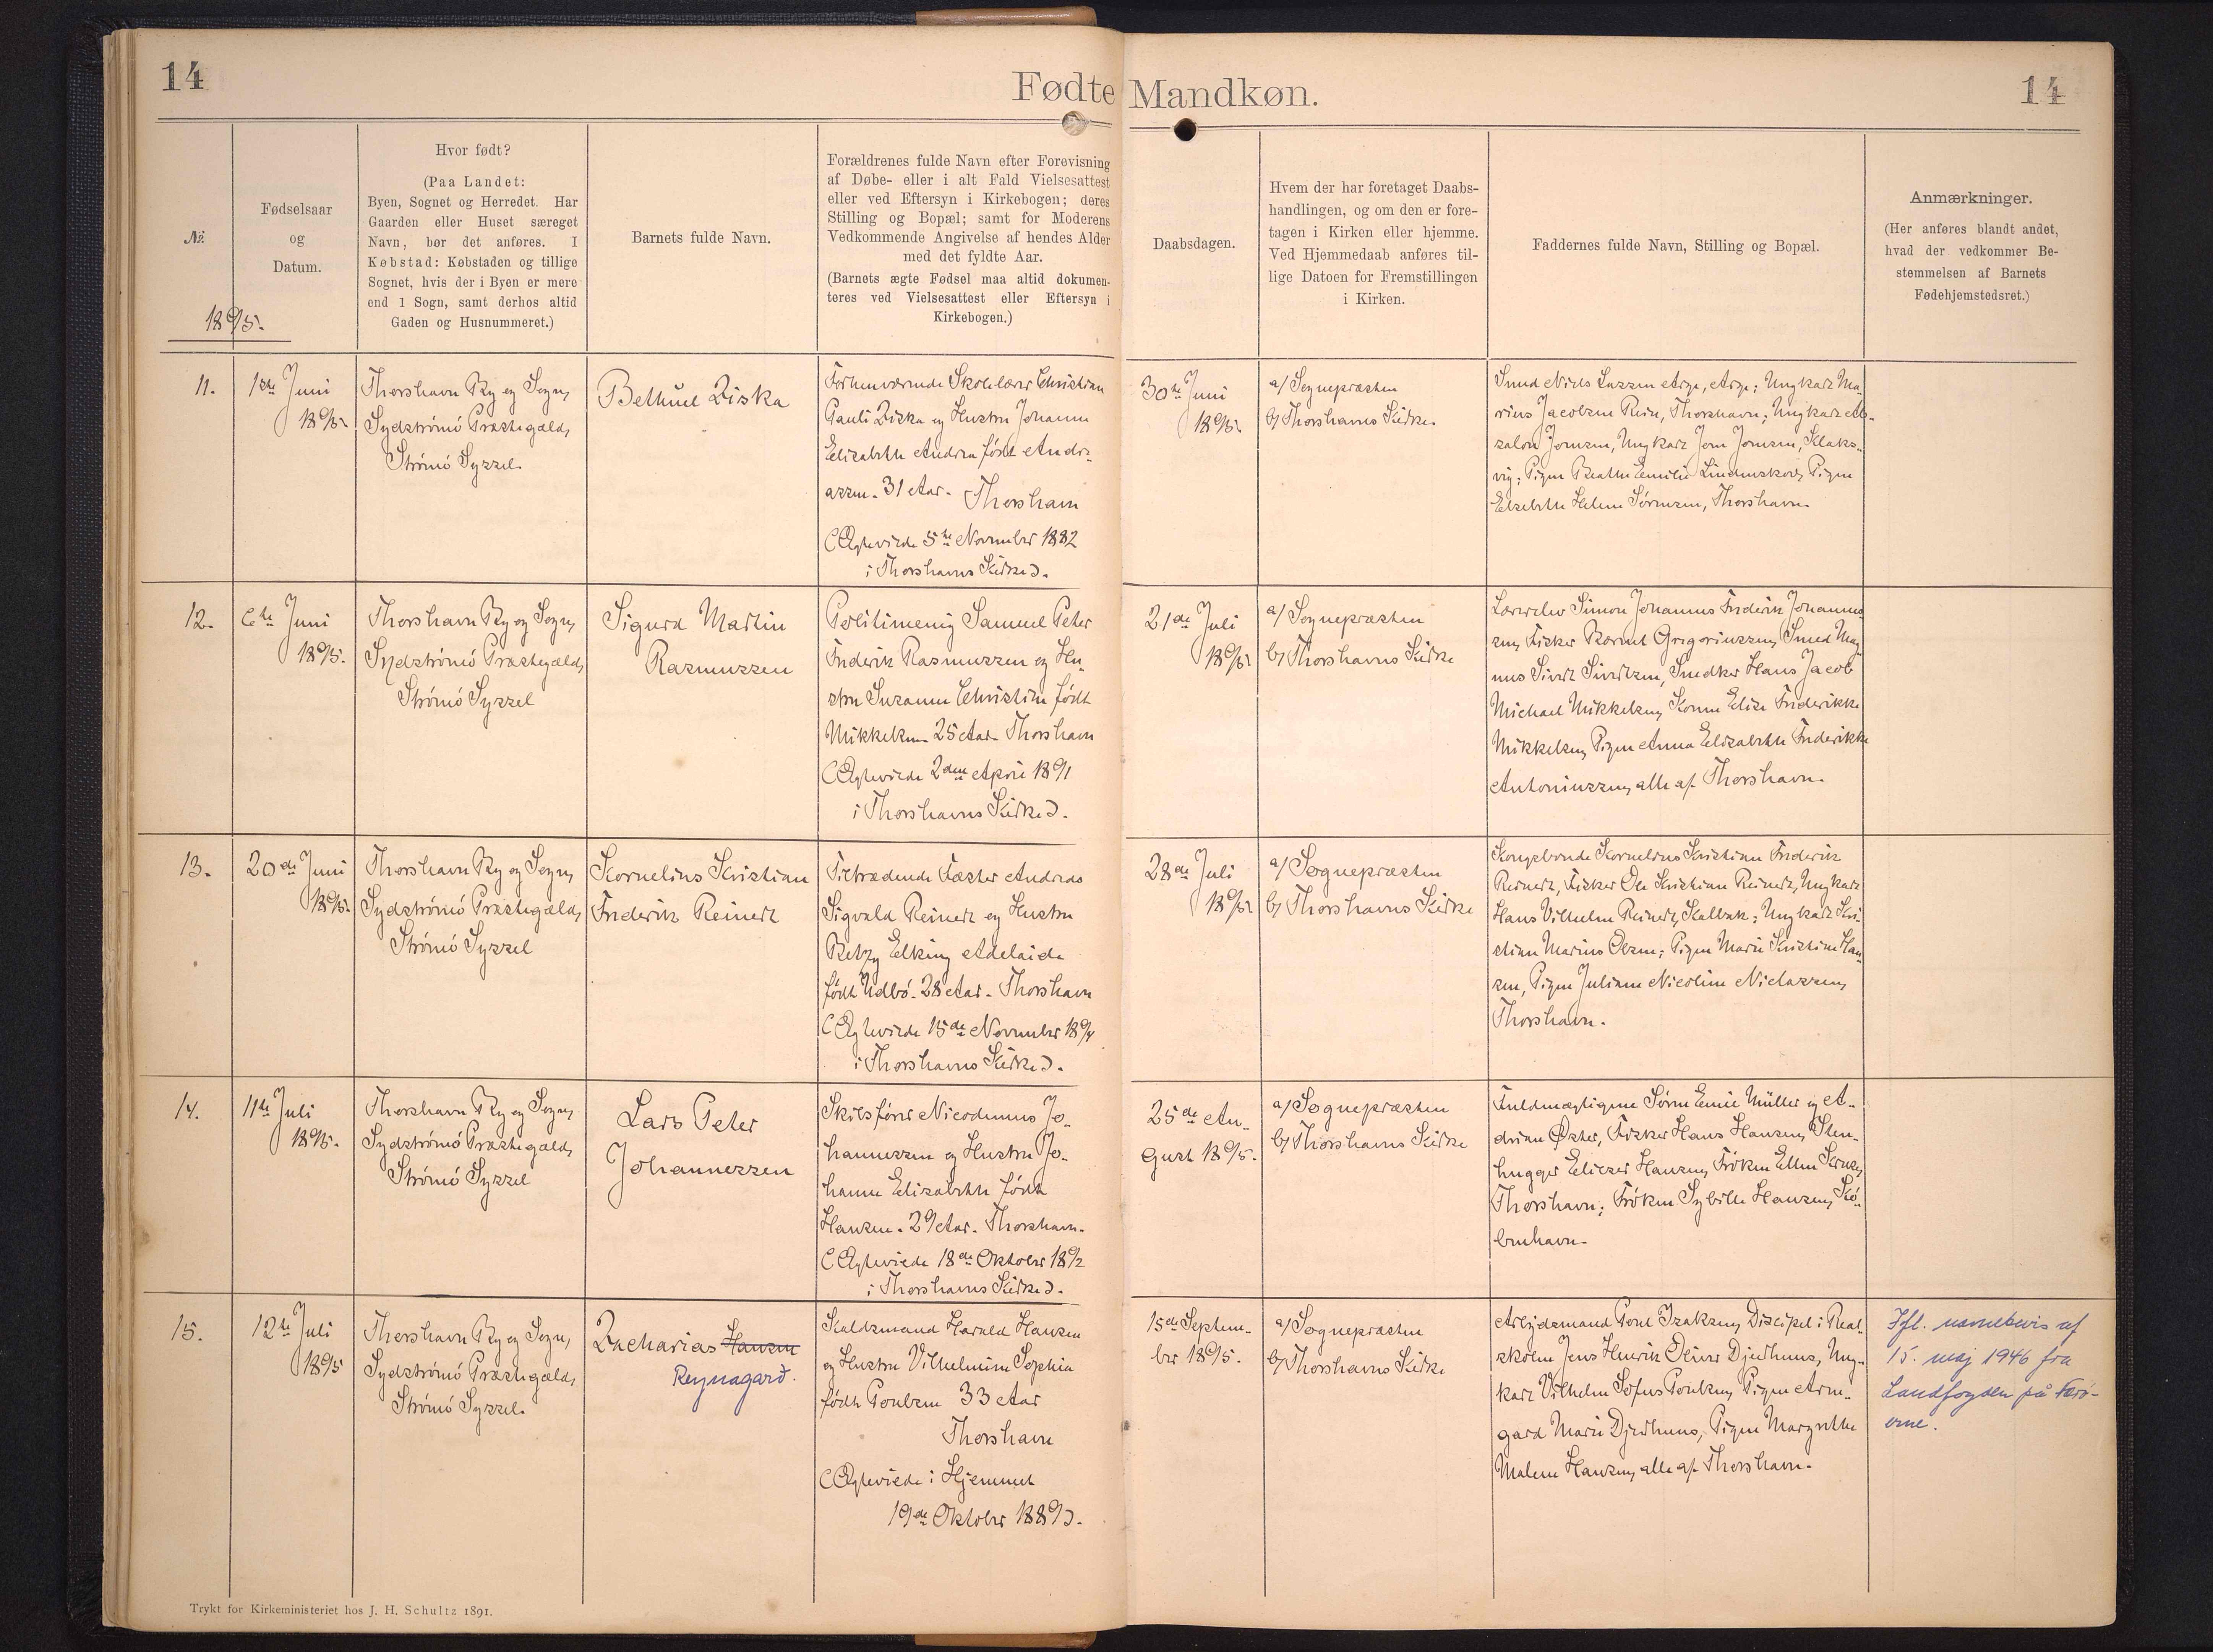 14
Fødte Mandkøn.
14
№
1895.
Fødselsaar
og
Datum.
Hvor født?
(Paa Landet:
Byen, Sognet og Herredet. Har
Gaarden eller Huset særeget
Navn, bør det anføres. I
Købstad: Købstaden og tillige
Sognet, hvis der i Byen er mere
end 1 Sogn, samt derhos altid
Gaden og Husnummeret.)
Barnets fulde Navn.
Forældrenes fulde Navn efter Forevisning
af Døbe- eller i alt Fald Vielsesattest
eller ved Eftersyn i Kirkebogen; deres
Stilling og Bopæl; samt for Moderens
Vedkommende Angivelse af hendes Alder
med det fyldte Aar.
(Barnets ægte Fødsel maa altid dokumen-
teres ved Vielsesattest eller Eftersyn i
Kirkebogen.)
Daabsdagen.
Hvem der har foretaget Daabs-
handlingen, og om den er fore-
tagen i Kirken eller hjemme.
Ved Hjemmedaab anføres til-
lige Datoen for Fremstillingen
i Kirken.
Faddernes fulde Navn, Stilling og Bopæl.
Anmærkninger.
(Her anføres blandt andet,
hvad der vedkommer Be-
stemmelsen af Barnets
Fødehjemstedsret.)
11.
1ste Juni
1895.
Thorshavn By og Sogn,
Sydstrømø Præstegæld,
Strømø Syssel.
Bethuel Ziska
Forhenværende Skolelærer Christian
Pauli Ziska og Hustru Johanne
Elisabeth Andrea født Andre-
assen. 31 Aar. Thorshavn
(Ægteviede 5te November 1882
i Thorshavns Kirke).
30te Juni
1895.
a/ Sognepræsten
b/ Thorshavns Kirke.
Smed Niels Lassen Arge, Arge; Ungkarl Ma-
rius Jacobsen Rein, Thorshavn; Ungkarl Ab-
salon Joensen, Ungkarl Joen Joensen, Klaks-
vig; Pigen Beathe Emilie Lindenskov, Pigen
Elsebeth Helene Sørensen, Thorshavn.
12.
6te Juni
1895.
Thorshavn By og Sogn,
Sydstrømø Præstegæld,
Strømø Syssel
Sigurd Martin
Rasmussen
Politimenig Samuel Peter
Frederik Rasmussen og Hu-
stru Susanne Christine født
Mikkelsen. 25 Aar. Thorshavn
(Ægteviede 2den April 1891
i Thorshavns Kirke).
21de Juli
1895.
a/ Sognepræsten
b/ Thorshavns Kirke
Lærerelev Simon Johannes Frederik Johannes-
sen, Fisker Berent Gregoriussen, Smed Mag-
nus Sivert Sivertsen, Snedker Hans Jacob
Michael Mikkelsen, Konen Elise Frederikke
Mikkelsen, Pigen Anna Elisabeth Frederikke
Antoniussen, alle af Thorshavn.
13.
20de Juni
1895.
Thorshavn By og Sogn,
Sydstrømø Præstegæld,
Strømø Syssel
Kornelius Kristian
Frederik Reinert
Tiltrædende Fæster Andreas
Sigvald Reinert og Hustru
Betzy Elking Adelaide
født Udbø. 28 Aar. Thorshavn
(Ægteviede 15de November 1894
i Thorshavns Kirke).
28de Juli
1895.
a/ Sognepræsten
b/ Thorshavns Kirke
Kongsbonde Kornelius Kristian Frederik
Reinert, Fisker Ole Kristian Reinert, Ungkarl
Hans Vilhelm Reinert, Kalbak; Ungkarl Kri-
stian Marius Olsen; Pigen Marie Kristine Han-
sen, Pigen Juliane Nicoline Niclassen,
Thorshavn.
14.
11te Juli
1895.
Thorshavn By og Sogn,
Sydstrømø Præstegæld,
Strømø Syssel
Lars Peter
Johannessen
Skibsfører Nicodemus Jo-
hannessen og Hustru Jo-
hanne Elisabeth født
Hansen. 29 Aar. Thorshavn.
(Ægteviede 18de Oktober 1892
i Thorshavns Kirke).
25de Au-
gust 1895.
a/ Sognepræsten
b/ Thorshavns Kirke
Fuldmægtigene Søren Emil Müller og A-
drian Øster, Fisker Hans Hansen, Sten-
hugger Eliezer Hansen, Frøken Ellen Kruse,
Thorshavn; Frøken Sybille Hansen, Kø-
benhavn.
15.
12te Juli
1895
Thorshavn By og Sogn,
Sydstrømø Præstegæld,
Strømø Syssel.
Zacharias Hansen
Reynagarð.
Kuldsmand Harald Hansen
og Hustru Vilhelmine Sophia
født Poulsen 33 Aar
Thorshavn
(Ægteviede i Hjemmet
19de Oktober 1889).
15de Septem-
ber 1895.
a/ Sognepræsten
b/ Thorshavns Kirke
Arbejdsmand Poul Isaksen, Discipel i Real-
skolen Jens Henrik Oliver Djurhuus, Ung-
karl Vilhelm Sofus Poulsen, Pigen Arm-
gard Marie Djurhuus, Pigen Margrethe
Malene Hansen, alle af Thorshavn.
Ifl. navnebevis af
15. maj 1946 fra
Landfogden på Færø-
erne.
Trykt for Kirkeministeriet hos J. H. Schultz 1891.